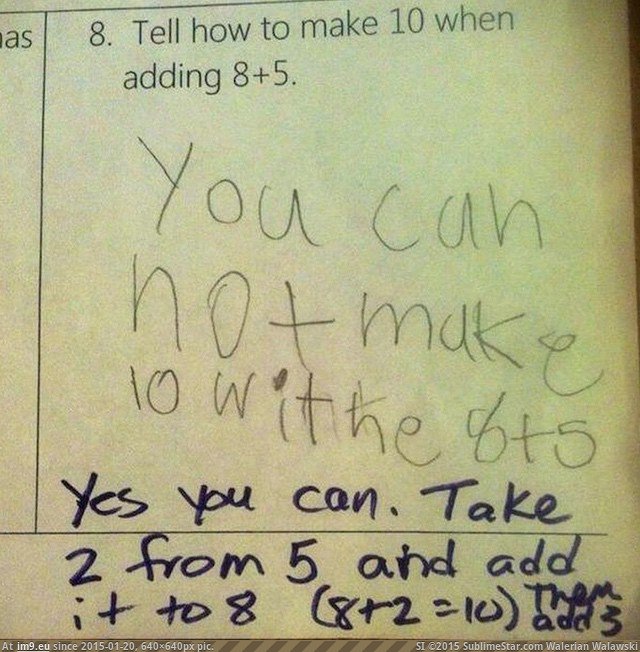 as
8. Tell how to make 10 when
adding 8+5.
You can
not make
10 withe 8+5
Yes you can. Take
2 from 5 and add
it to 8 (8+2=10) Then
add 3
At im9.eu since 2015-01-20, 640×640px pic.
SI ©2015 SublimeStar.com Walerian Walawski